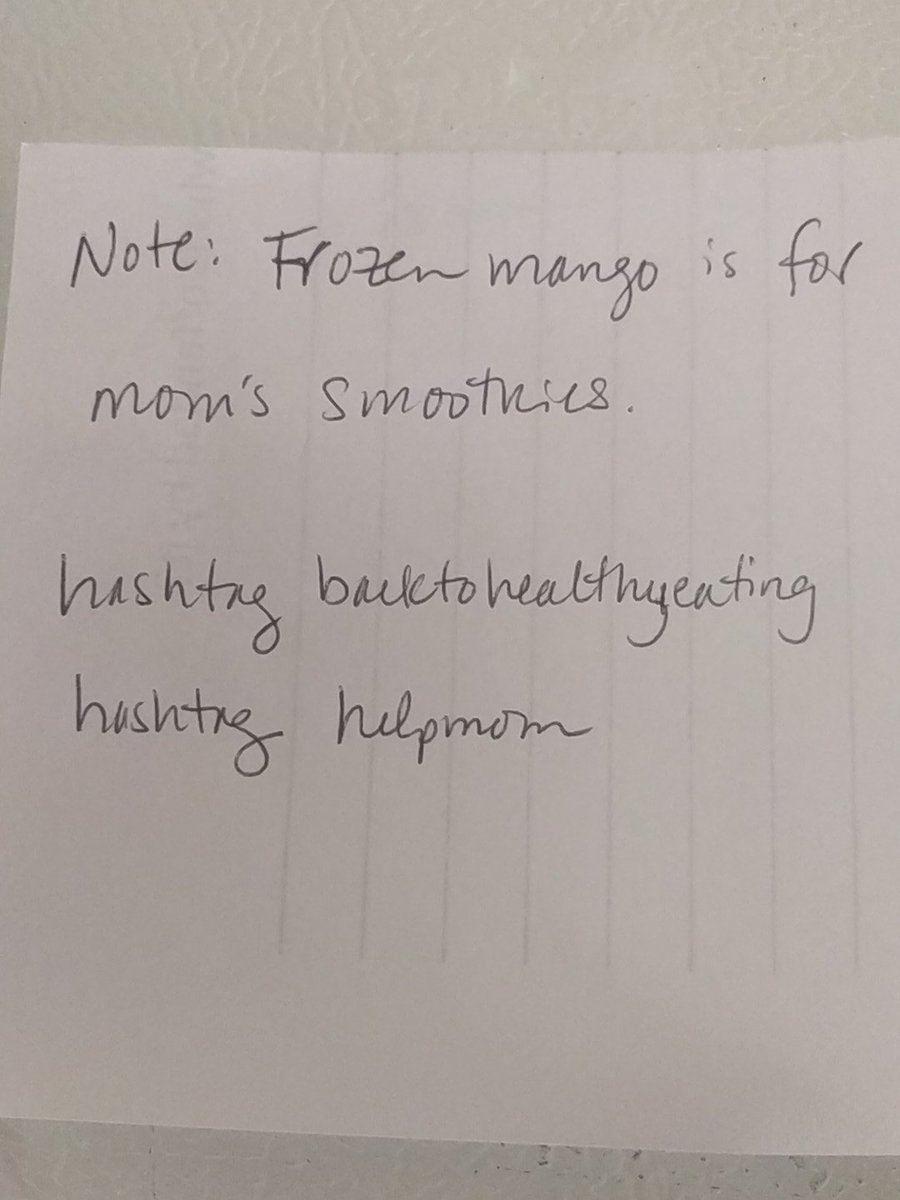 Note: Frozen mango is for
mom's smoothies.
hashtag backtohealthyeating
hashtag helpmom